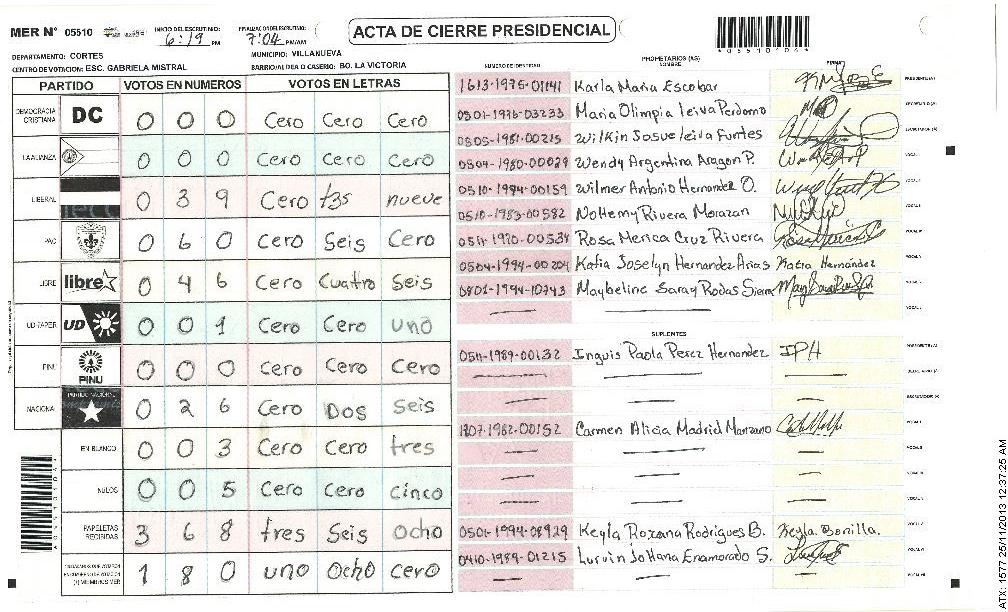 MER Nº 05510 INICIO DEL ESCRUTINIO: 6:19 PM FINALIZACION DEL ESCRUTINIO: 7:04 PM/AM ACTA DE CIERRE PRESIDENCIAL
DEPARTAMENTO: CORTES MUNICIPIO: VILLANUEVA
CENTRO DE VOTACION: ESC. GABRIELA MISTRAL BARRIO/ALDEA O CASERIO: BO. LA VICTORIA
PARTIDO VOTOS EN NUMEROS VOTOS EN LETRAS
DEMOCRACIA CRISTIANA DC 0 0 0 Cero Cero Cero
LA ALIANZA 0 0 0 Cero Cero Cero
LIBERAL 0 3 9 Cero t3s nueve
PAC 0 6 0 Cero Seis Cero
LIBRE libre 0 4 6 Cero Cuatro Seis
UD-FAPER UD 0 0 1 Cero Cero uno
PINU PINU 0 0 0 Cero Cero Cero
NACIONAL PARTIDO NACIONAL 0 2 6 Cero Dos Seis
EN BLANCO 0 0 3 Cero Cero tres
NULOS 0 0 5 Cero Cero Cinco
PAPELETAS RECIBIDAS 3 6 8 tres Seis Ocho
1 8 0 uno Ocho Cero
NUMERO DE IDENTIDAD PROPIETARIOS (AS) NOMBRE FIRMA
1613-1975-01141 Karla Maria Escobar PRESIDENTE (A)
0501-1976-03233 Maria Olimpia leiva Perdomo SECRETARIO (A)
0505-1981-00215 Wilkin Josue leiva Funtes ESCRUTADOR (A)
0504-1980-00029 Wendy Argentina Aragon P. VOCAL I
0510-1994-00159 Wilmer Antonio Hernandez O. VOCAL II
0510-1983-00582 Nohemy Rivera Morazan
0511-1970-00534 Rosa Merica Cruz Rivera
0504-1994-00204 Katia Joselyn Hernandez Arias Katia Hernández
0801-1994-10743 Maybeline Saray Rodas Sierra
SUPLENTES
0511-1989-00132 Inguis Paola Perez Hernandez IPH PRESIDENTE (A)
SECRETARIO (A)
ESCRUTADOR (A)
1807-1982-00152 Carmen Alicia Madrid Manzano
0501-1994-08929 Keyla Roxana Rodrigues B. Keyla Bonilla.
0410-1989-01215 Lurvin Johana Enamorado S.
ATX: 1577 25/11/2013 12:37:25 AM